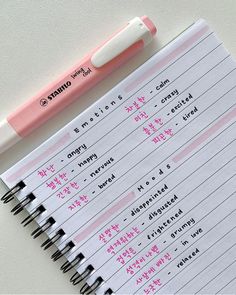 STABILO swing cool
Emotions
화난 - angry
행복한 - happy
긴장한 - nervous
지루한 - bored
차분한 - calm
미친 - crazy
흥분한 - excited
피곤한 - tired
Moods
실망한 - disappointed
역겨워하는 - disgusted
겁먹은 - frightened
성격이 나쁜 - grumpy
사랑에 빠진 - in love
느긋한 - relaxed